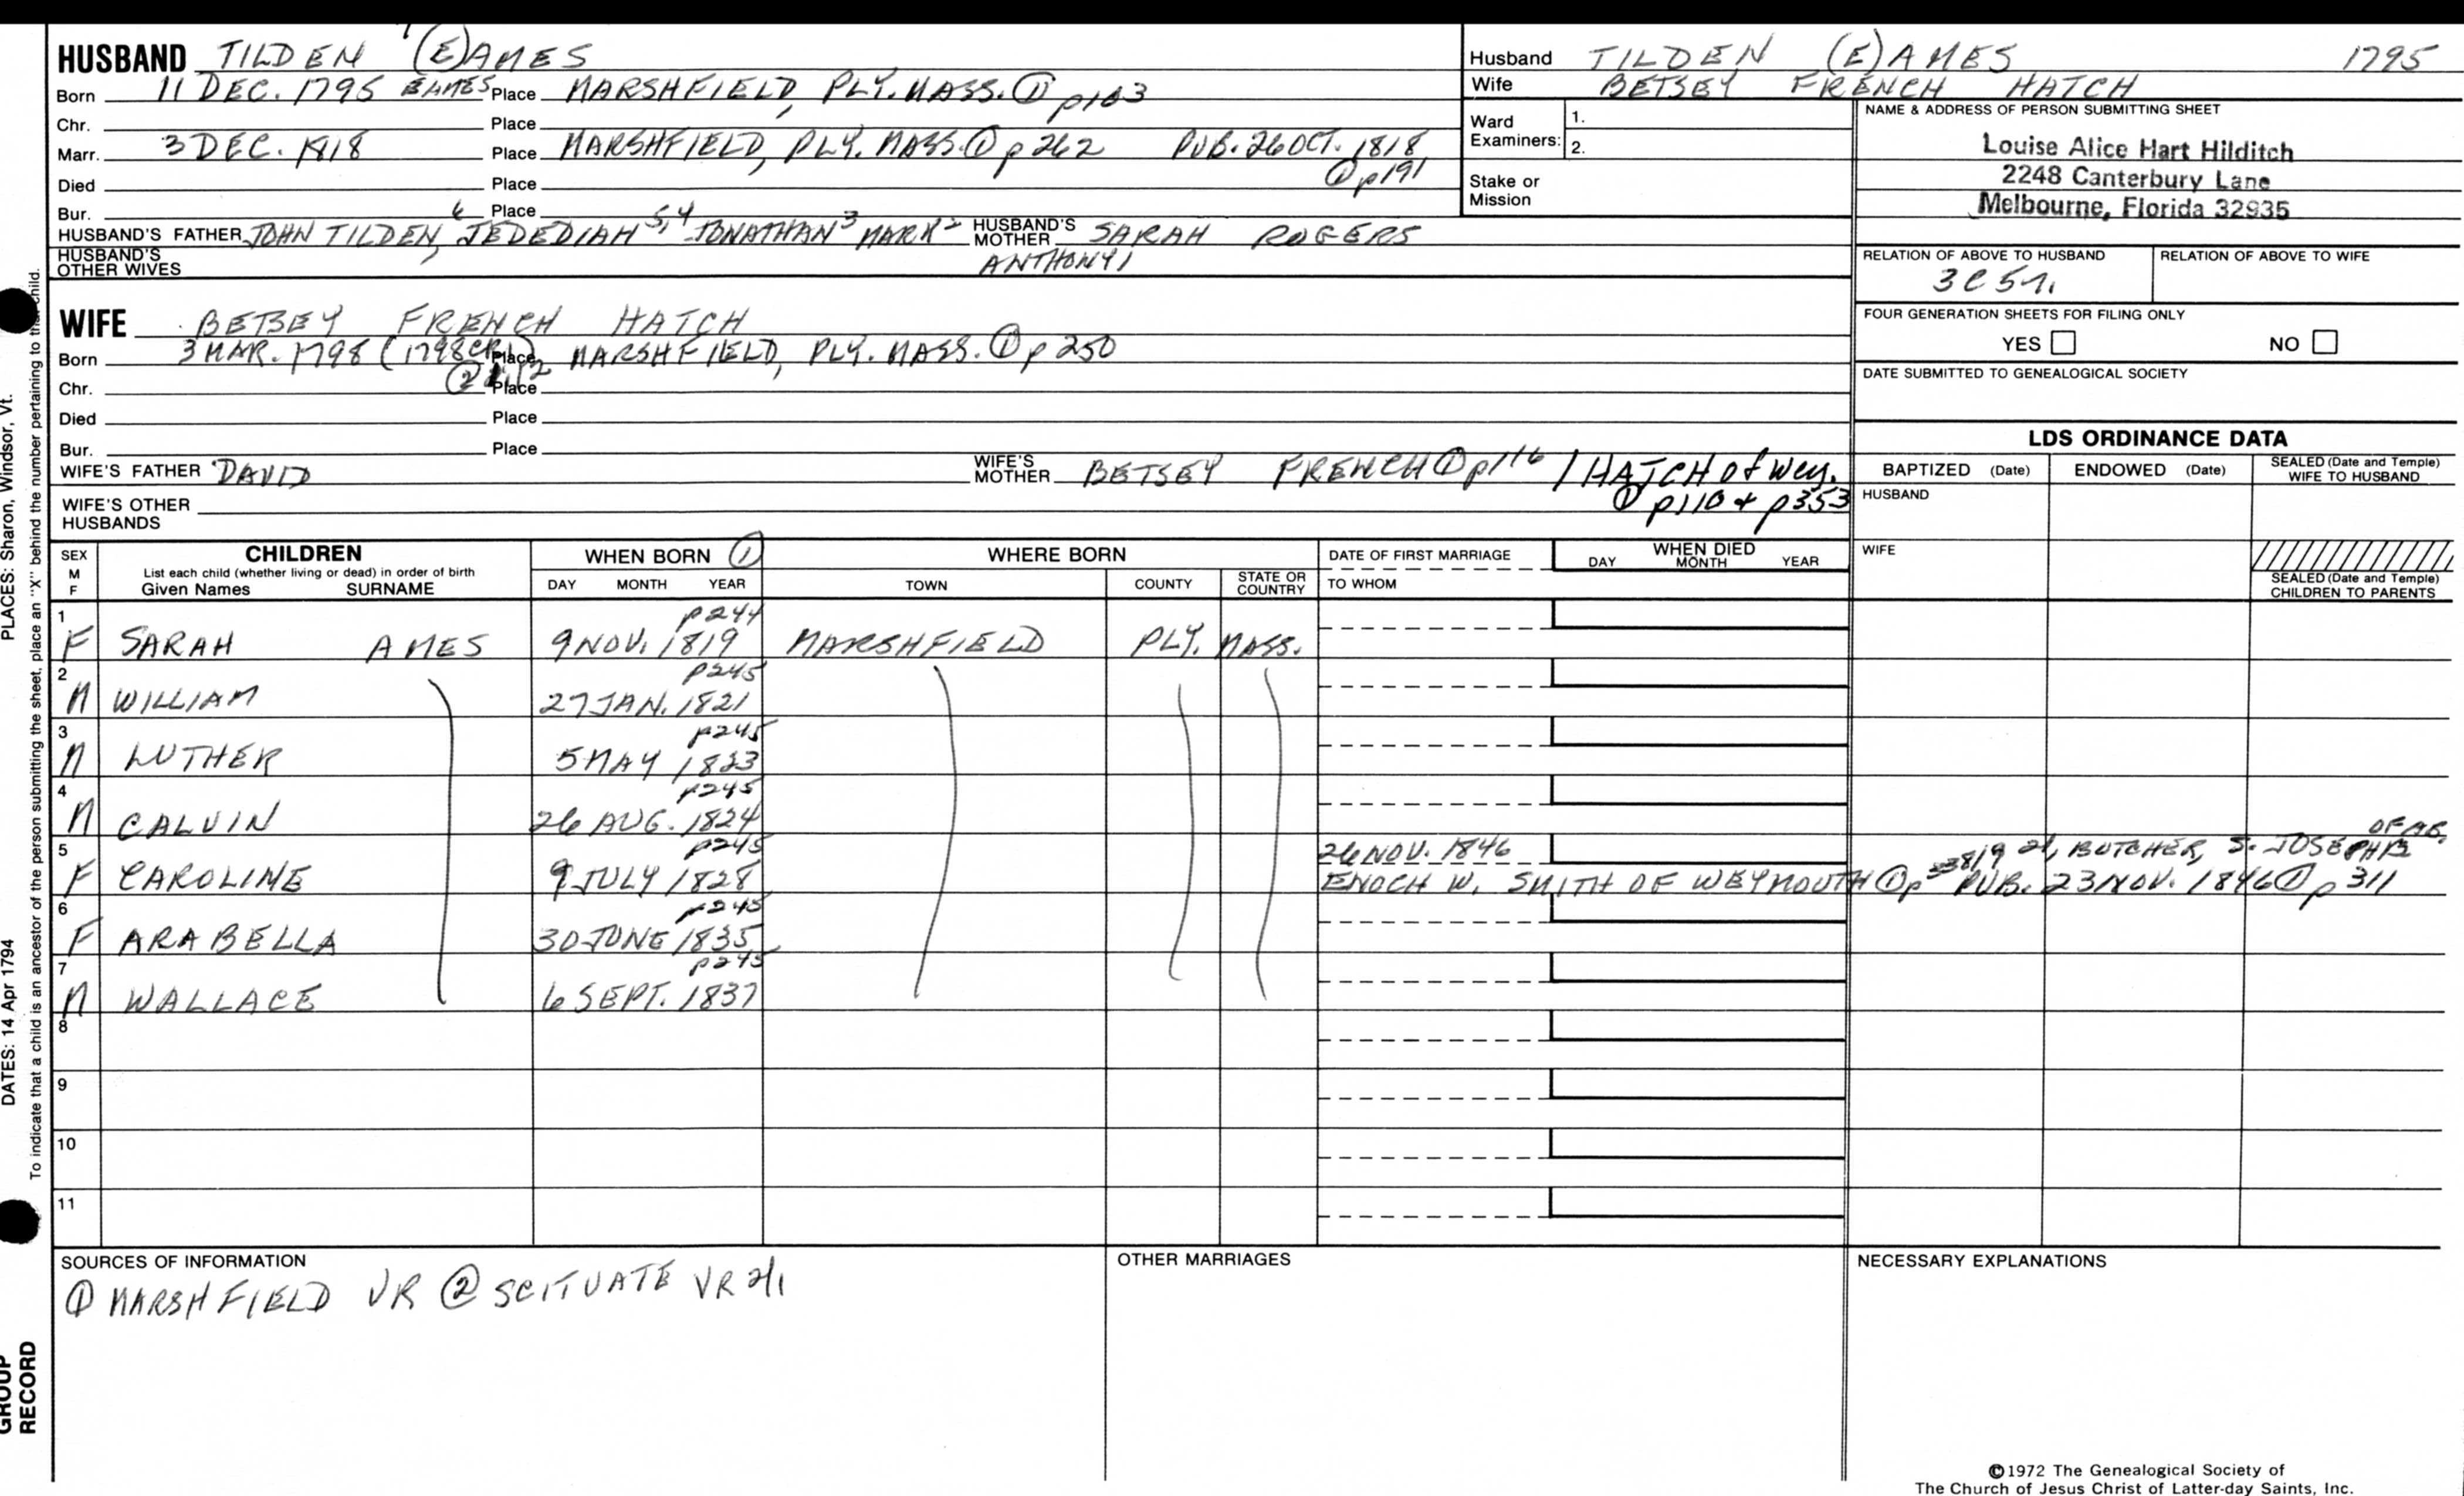 HUSBAND TILDEN (E)AMES
Born 11 DEC. 1795 EAMES Place MARSHFIELD, PLY. MASS. ① p103
Chr. Place
Marr. 3 DEC. 1818 Place MARSHFIELD, PLY. MASS. ① p 262 PUB. 26 OCT. 1818
① p191
Died Place
Bur. Place
HUSBAND'S FATHER JOHN TILDEN 6, JEDEDIAH 5,4 JONATHAN 3 MARK 2 HUSBAND'S MOTHER SARAH ROGERS
HUSBAND'S OTHER WIVES ANTHONY 1
Husband TILDEN (E)AMES 1795
Wife BETSEY FRENCH HATCH
Ward Examiners: 1.
2.
Stake or Mission
NAME & ADDRESS OF PERSON SUBMITTING SHEET
Louise Alice Hart Hilditch
2248 Canterbury Lane
Melbourne, Florida 32935
RELATION OF ABOVE TO HUSBAND RELATION OF ABOVE TO WIFE
3C5
FOUR GENERATION SHEETS FOR FILING ONLY
YES NO
DATE SUBMITTED TO GENEALOGICAL SOCIETY
WIFE BETSEY FRENCH HATCH
Born 3 MAR. 1798 (1798 CR1) Place MARSHFIELD, PLY. MASS. ① p 250
Chr. ② Place
Died Place
Bur. Place
WIFE'S FATHER DAVID WIFE'S MOTHER BETSEY FRENCH ① p116 / HATCH of Wey.
① p110 + p353
WIFE'S OTHER HUSBANDS
LDS ORDINANCE DATA
BAPTIZED (Date) ENDOWED (Date) SEALED (Date and Temple) WIFE TO HUSBAND
HUSBAND
WIFE
SEALED (Date and Temple) CHILDREN TO PARENTS
SEX M F CHILDREN WHEN BORN ① WHERE BORN DATE OF FIRST MARRIAGE WHEN DIED
List each child (whether living or dead) in order of birth
Given Names SURNAME DAY MONTH YEAR TOWN COUNTY STATE OR COUNTRY TO WHOM DAY MONTH YEAR
1 p244
F SARAH AMES 9 NOV. 1819 MARSHFIELD PLY. MASS.
2 p245
M WILLIAM 27 JAN. 1821
3 p245
M LUTHER 5 MAY 1823
4 p245
M CALVIN 26 AUG. 1824
5 p245 26 NOV. 1846 BUTCHER, S. JOSEPH
F CAROLINE 9 JULY 1828 ENOCH W. SMITH OF WEYMOUTH ① p PUB. 23 NOV. 1846 ① p 311
6 p245
F ARABELLA 30 JUNE 1835
7 p245
M WALLACE 6 SEPT. 1837
8
9
10
11
SOURCES OF INFORMATION OTHER MARRIAGES NECESSARY EXPLANATIONS
① MARSHFIELD VR ② SCITUATE VR
©1972 The Genealogical Society of
The Church of Jesus Christ of Latter-day Saints, Inc.
PLACES: Sharon, Windsor, Vt.
DATES: 14 Apr 1794
To indicate that a child is an ancestor of the person submitting the sheet, place an "X" behind the number pertaining to that child.
GROUP
RECORD